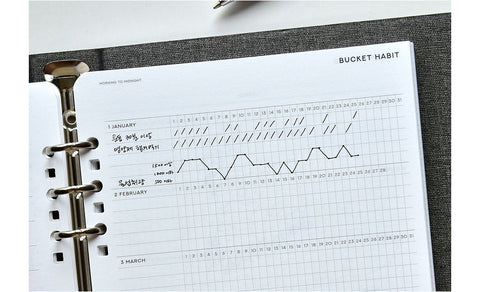 BUCKET HABIT
MORNING TO MIDNIGHT
1 JANUARY 1 2 3 4 5 6 7 8 9 10 11 12 13 14 15 16 17 18 19 20 21 22 23 24 25 26 27 28 29 30 31
운동 30분 이상
영양제 챙겨먹기
1500
1000
음식 500
2 FEBRUARY 1 2 3 4 5 6 7 8 9 10 11 12 13 14 15 16 17 18 19 20 21 22 23 24 25 26 27 28
3 MARCH 1 2 3 4 5 6 7 8 9 10 11 12 13 14 15 16 17 18 19 20 21 22 23 24 25 26 27 28 29 30 31